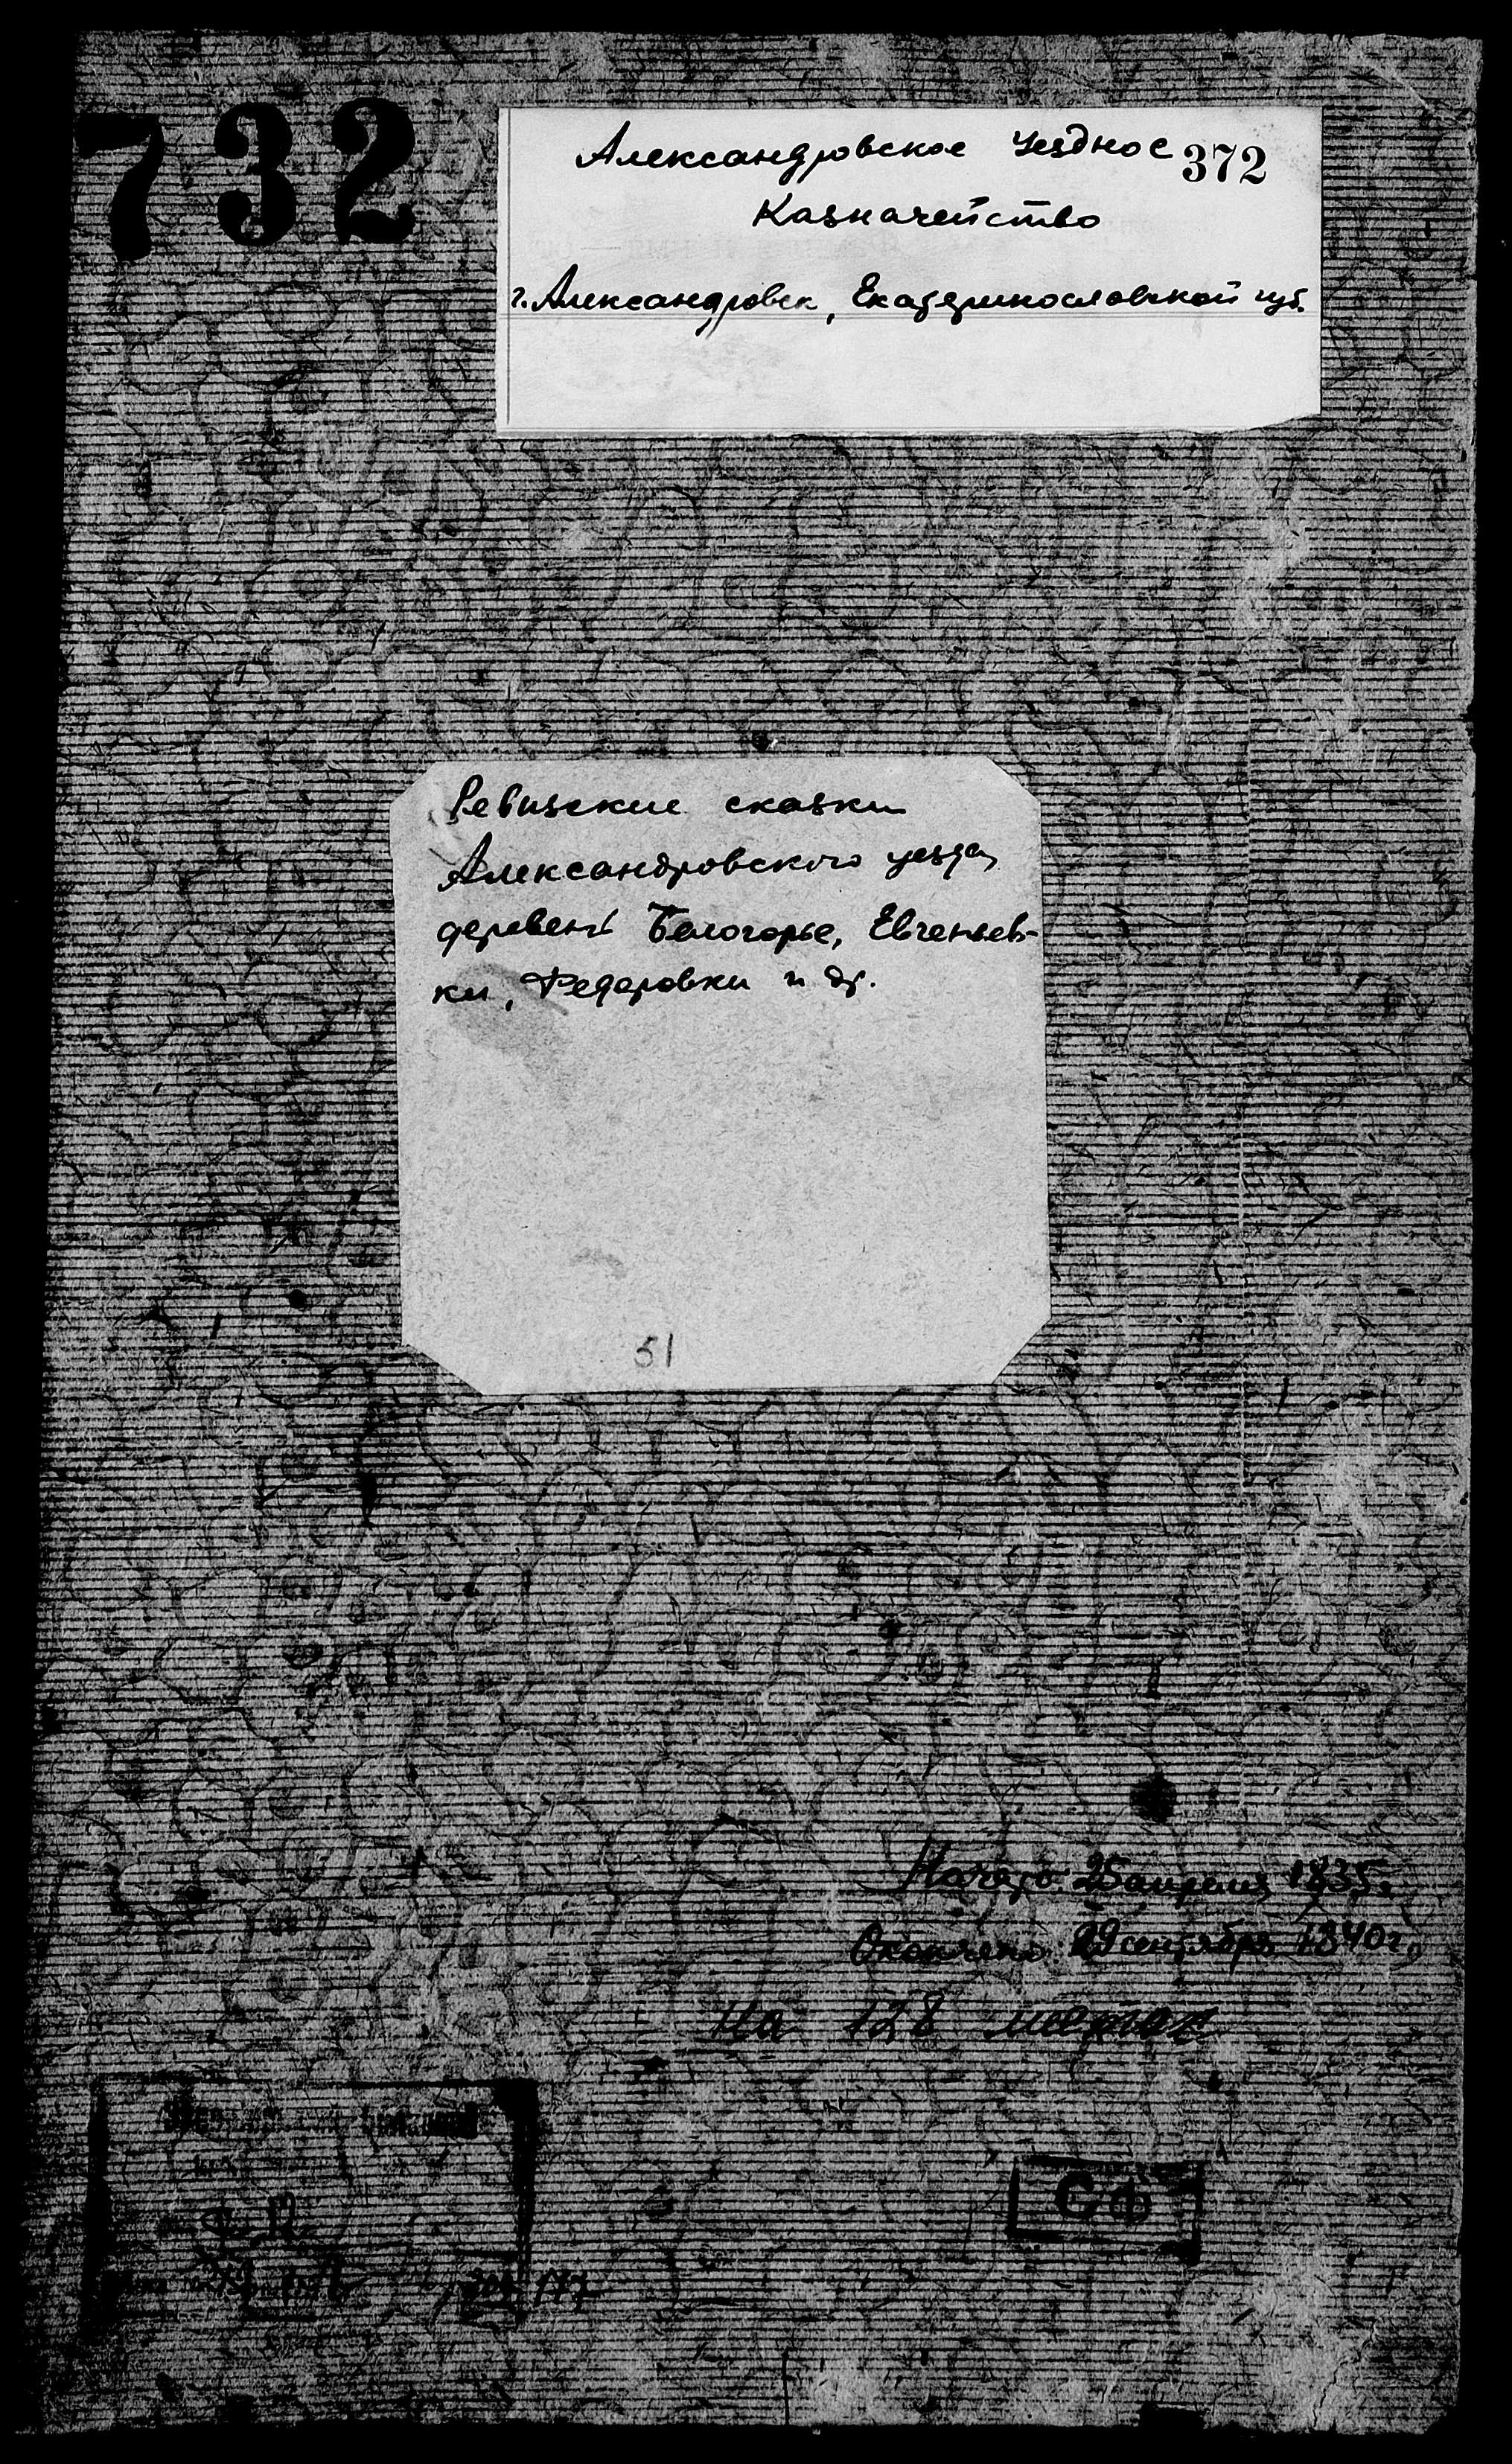 732
Александровское уездное 372
Казначейство
г. Александровск, Екатеринославской губ.
Ревизские сказки
Александровского уезда,
деревень Белогорье, Евгеньев-
ки, Федоровки и др.
51
Начато 25 апреля 1835 г.
Окончено 29 сентября 1840 г.
на 128 листах
СФ